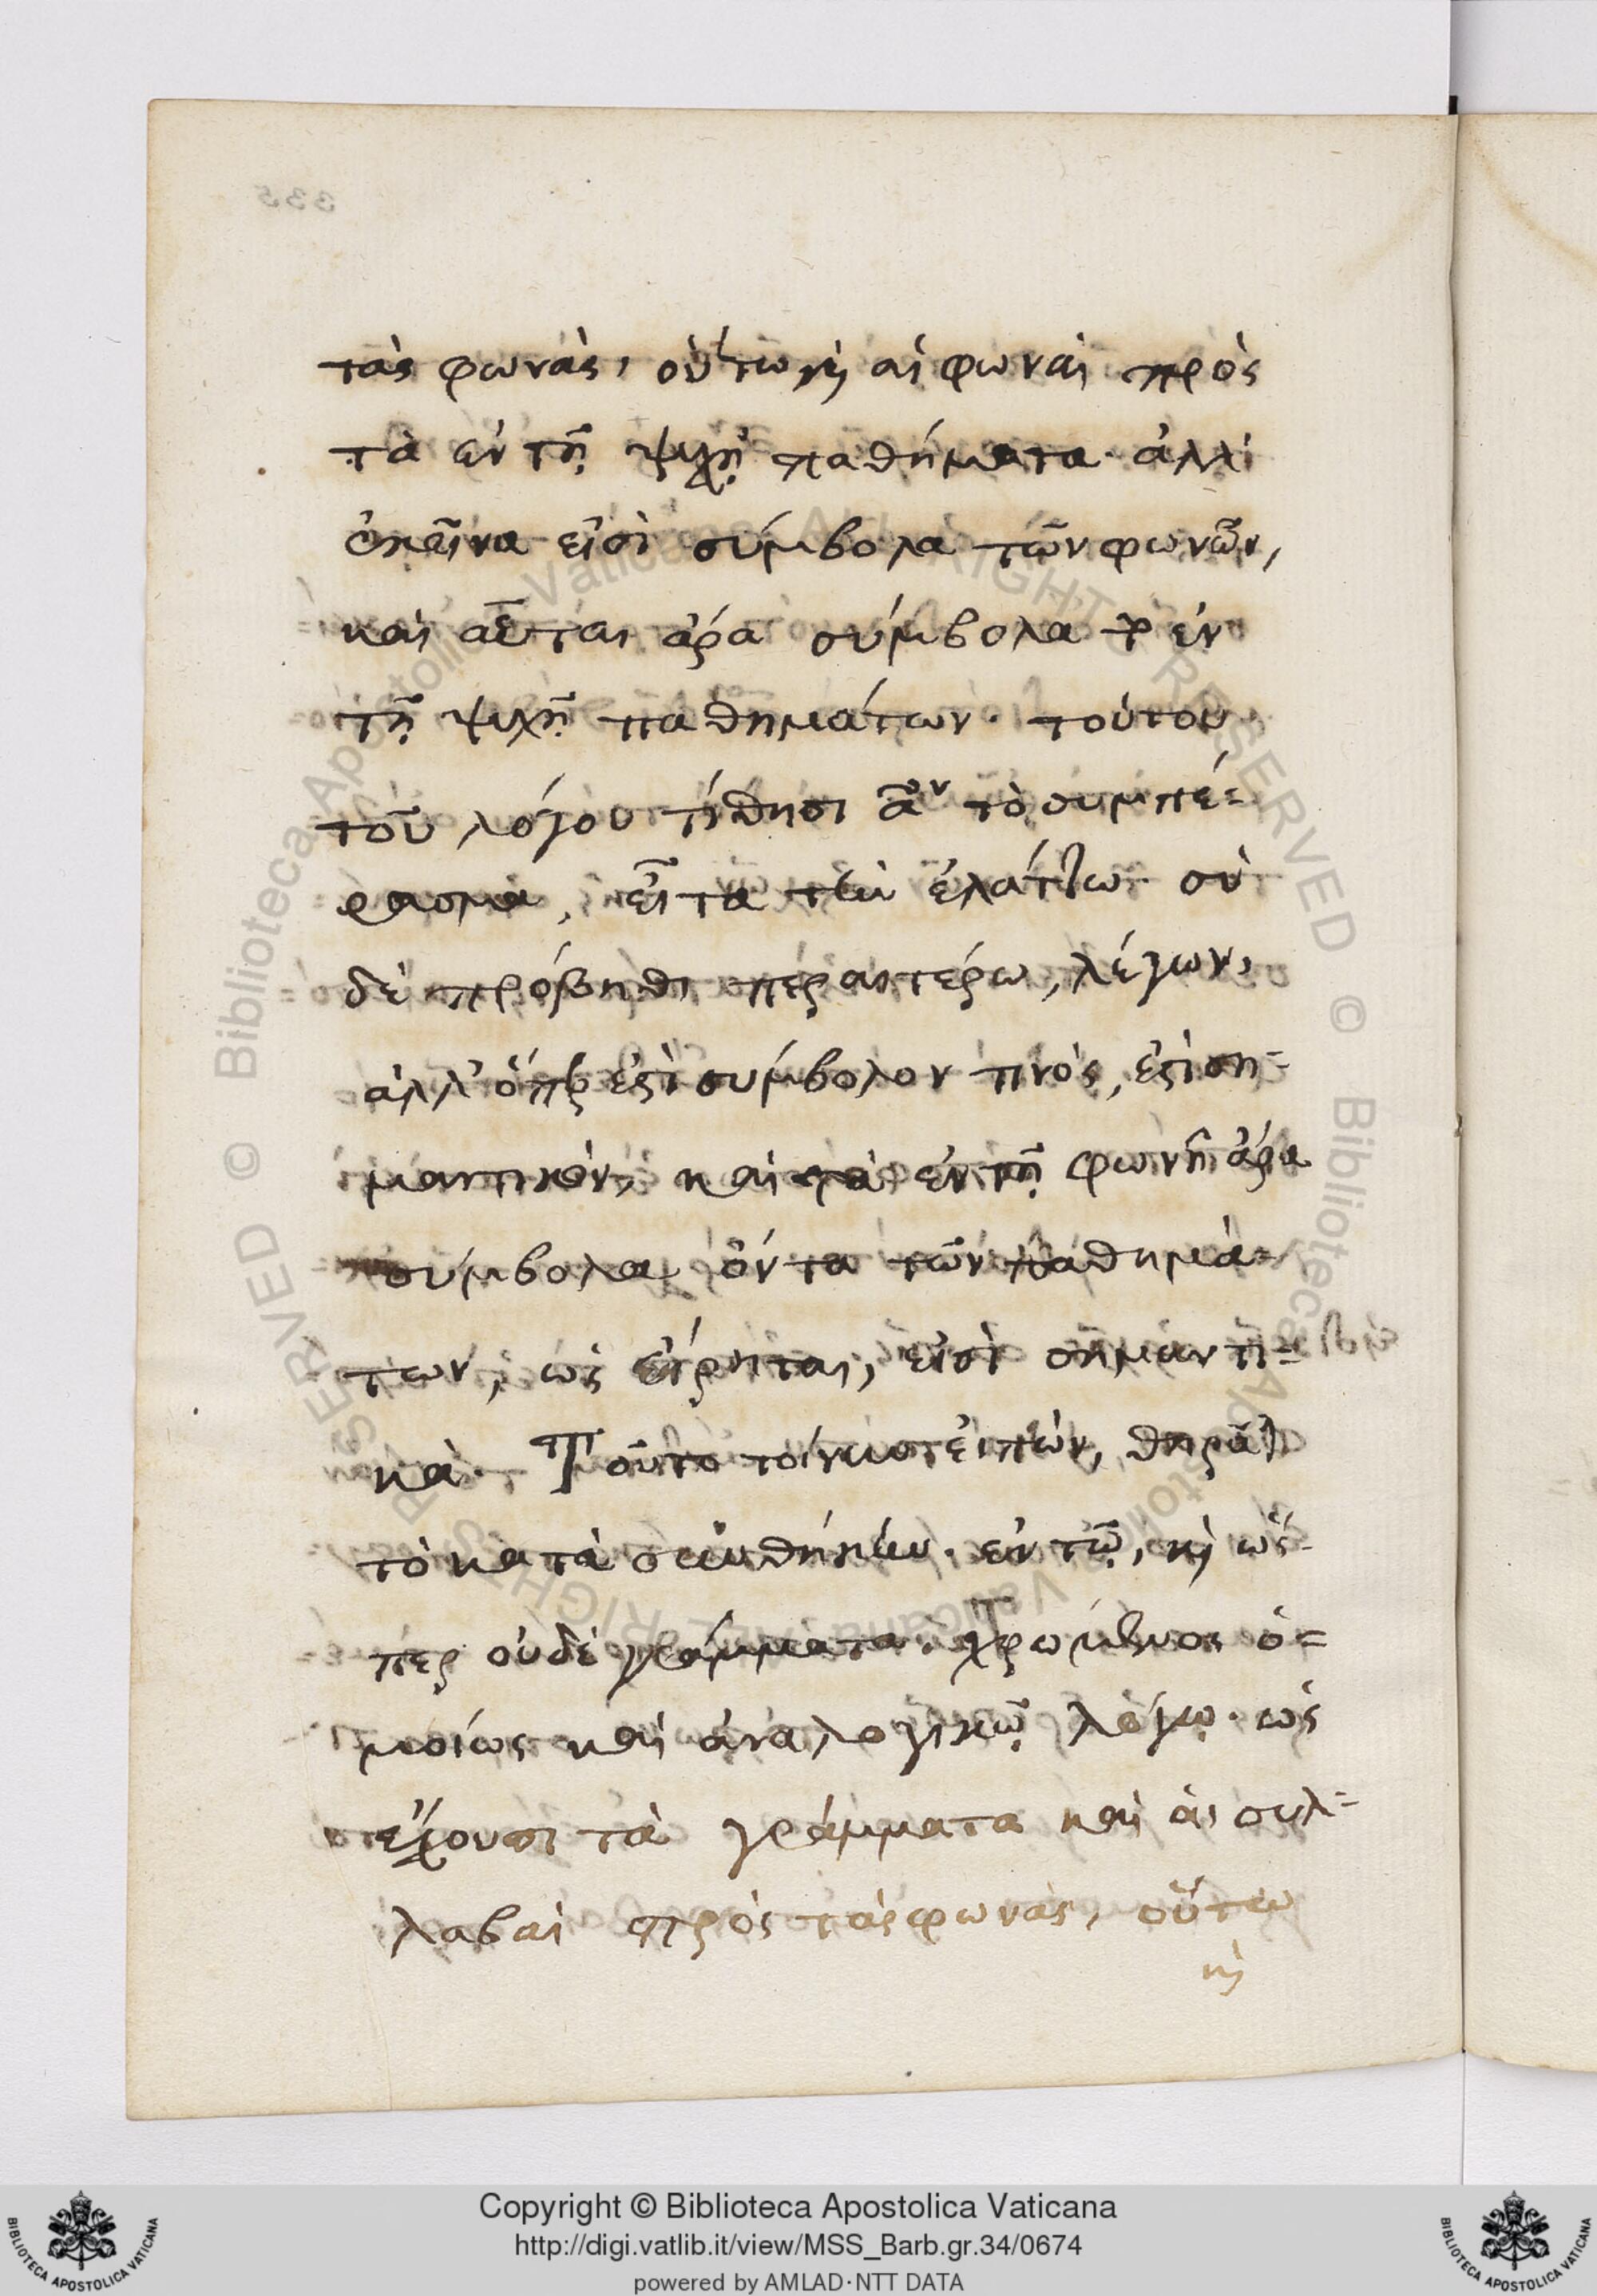 τὰς φωνὰς, οὕτω καὶ αἱ φωναὶ πρὸς
τὰ ἐν τῇ ψυχῇ παθήματα· ἀλλ'
ἐκεῖνα εἰσὶ σύμβολα τῶν φωνῶν,
καὶ αὗται ἄρα σύμβολα τῶν ἐν
τῇ ψυχῇ παθημάτων· τούτου
τοῦ λόγου τίθησι τὸ συμπέ=
ρασμα, εἶτα τὴν ἐλάττω· σὺ
δὲ πρόβηθι περαιτέρω, λέγων,
ἀλλ' ὅπερ ἐστὶ σύμβολον τινὸς, ἐστὶ ση=
μαντικόν, καὶ τὰ ἐν τῇ φωνῇ ἄρα
σύμβολα ὄντα τῶν παθημά=
των, ὡς εἴρηται, εἰσὶ σημαντι=
κὰ· Τοῦτο τοίνυν εἰπὼν, θηρᾷ
τὸ κατὰ συνθήκην· ἐν τῷ, καὶ ὥς=
περ οὐδὲ γράμματα· χρώμενος ὁ=
μοίως καὶ ἀναλογικῷ λόγῳ· ὡς
ἔχουσι τὰ γράμματα καὶ αἱ συλ=
λαβαὶ πρὸς τὰς φωνὰς, οὕτω
καὶ
335
Copyright © Biblioteca Apostolica Vaticana
http://digi.vatlib.it/view/MSS_Barb.gr.34/0674
powered by AMLAD·NTT DATA
BIBLIOTECA APOSTOLICA VATICANA
BIBLIOTECA APOSTOLICA VATICANA
© Biblioteca Apostolica Vaticana ALL RIGHTS RESERVED
© Biblioteca Apostolica Vaticana ALL RIGHTS RESERVED